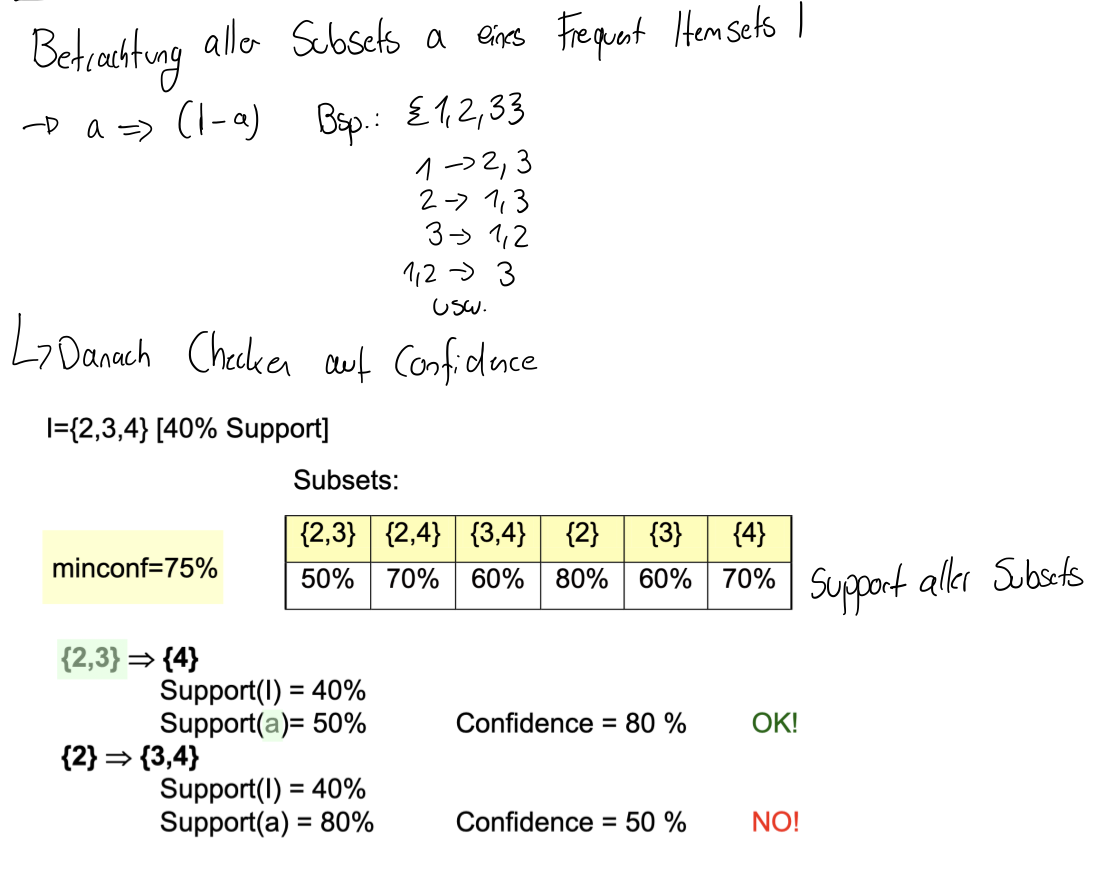 Betrachtung aller Subsets a eines Frequent Itemsets l
→ a ⇒ (l-a) Bsp.: {1,2,3}
1 → 2,3
2 → 1,3
3 → 1,2
1,2 → 3
usw.
↳ Danach Checken auf Confidence
l={2,3,4} [40% Support]
Subsets:
{2,3} {2,4} {3,4} {2} {3} {4}
minconf=75%
50% 70% 60% 80% 60% 70% Support aller Subsets
{2,3} ⇒ {4}
Support(l) = 40%
Support(a)= 50% Confidence = 80 % OK!
{2} ⇒ {3,4}
Support(l) = 40%
Support(a) = 80% Confidence = 50 % NO!